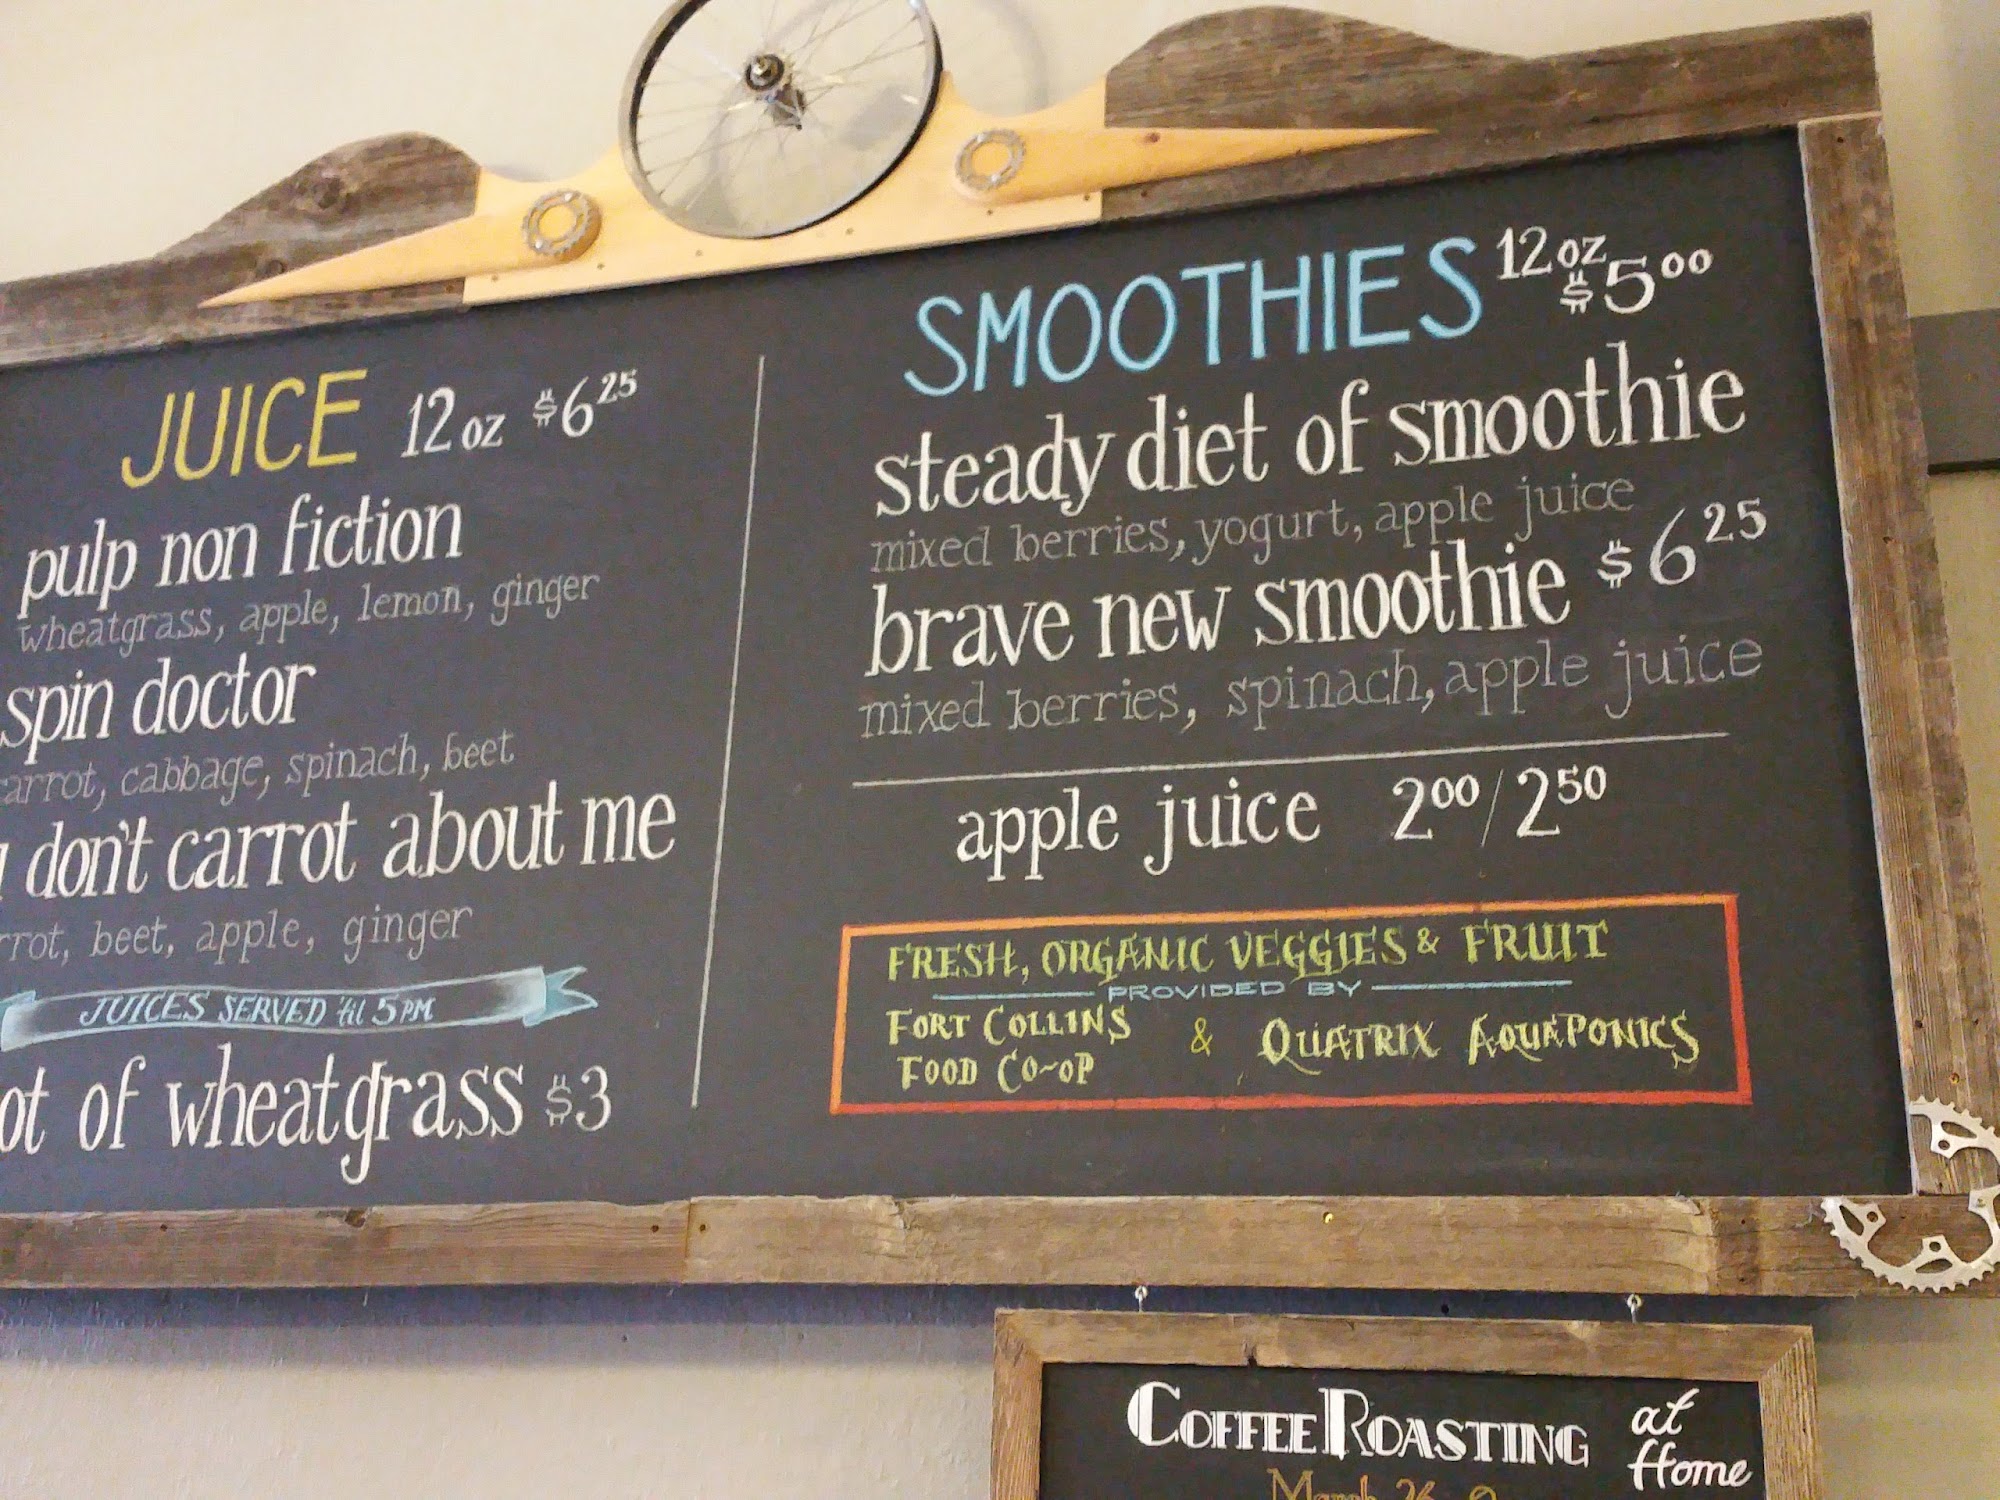 JUICE 12 oz $6 25
pulp non fiction
wheatgrass, apple, lemon, ginger
spin doctor
arrot, cabbage, spinach, beet
don't carrot about me
rrot, beet, apple, ginger
JUICES SERVED 'til 5 PM
ot of wheatgrass $3
SMOOTHIES 12 oz $5 00
steady diet of smoothie
mixed berries, yogurt, apple juice
brave new smoothie $6 25
mixed berries, spinach, apple juice
apple juice 2 00 / 2 50
FRESH, ORGANIC VEGGIES & FRUIT
PROVIDED BY
FORT COLLINS FOOD CO-OP & QUATRIX AQUAPONICS
COFFEE ROASTING at Home
March 26